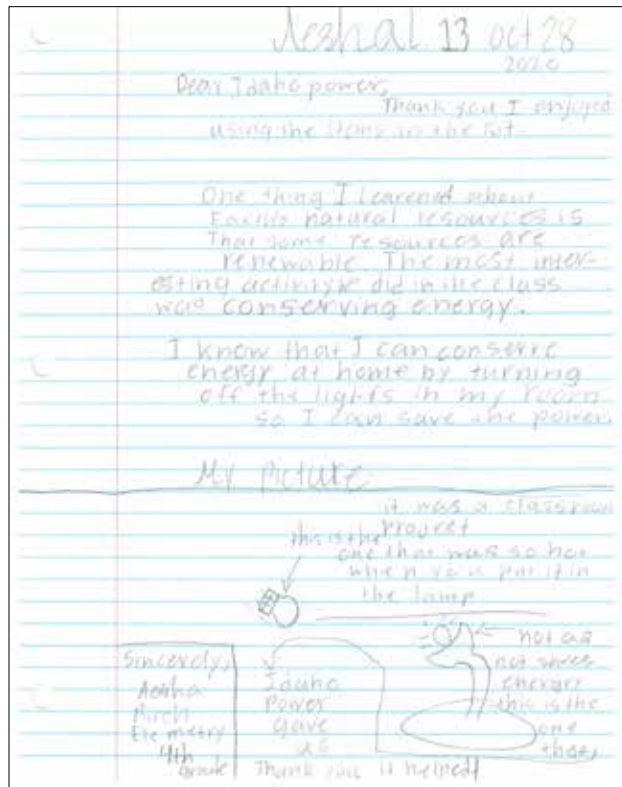 13 oct 28
Dear Idaho power,
Thank you I enjoyed
using the items in the kit.
One thing I learened about
Earth's natural resources is
That some resources are
renewable. The most inter-
esting activity did in the class
was conserving energy.
I know that I can conserve
energy at home by turning
off the lights in my room
so I can save the power.
My picture
it was a classroom
Project
this is the
one that was so hot
when you put it in
the lamp
not as
hot saves
energy
this is the
one
that
Sincerely,
4th
grade
Idaho
Power
gave
us
Thank you it helped!